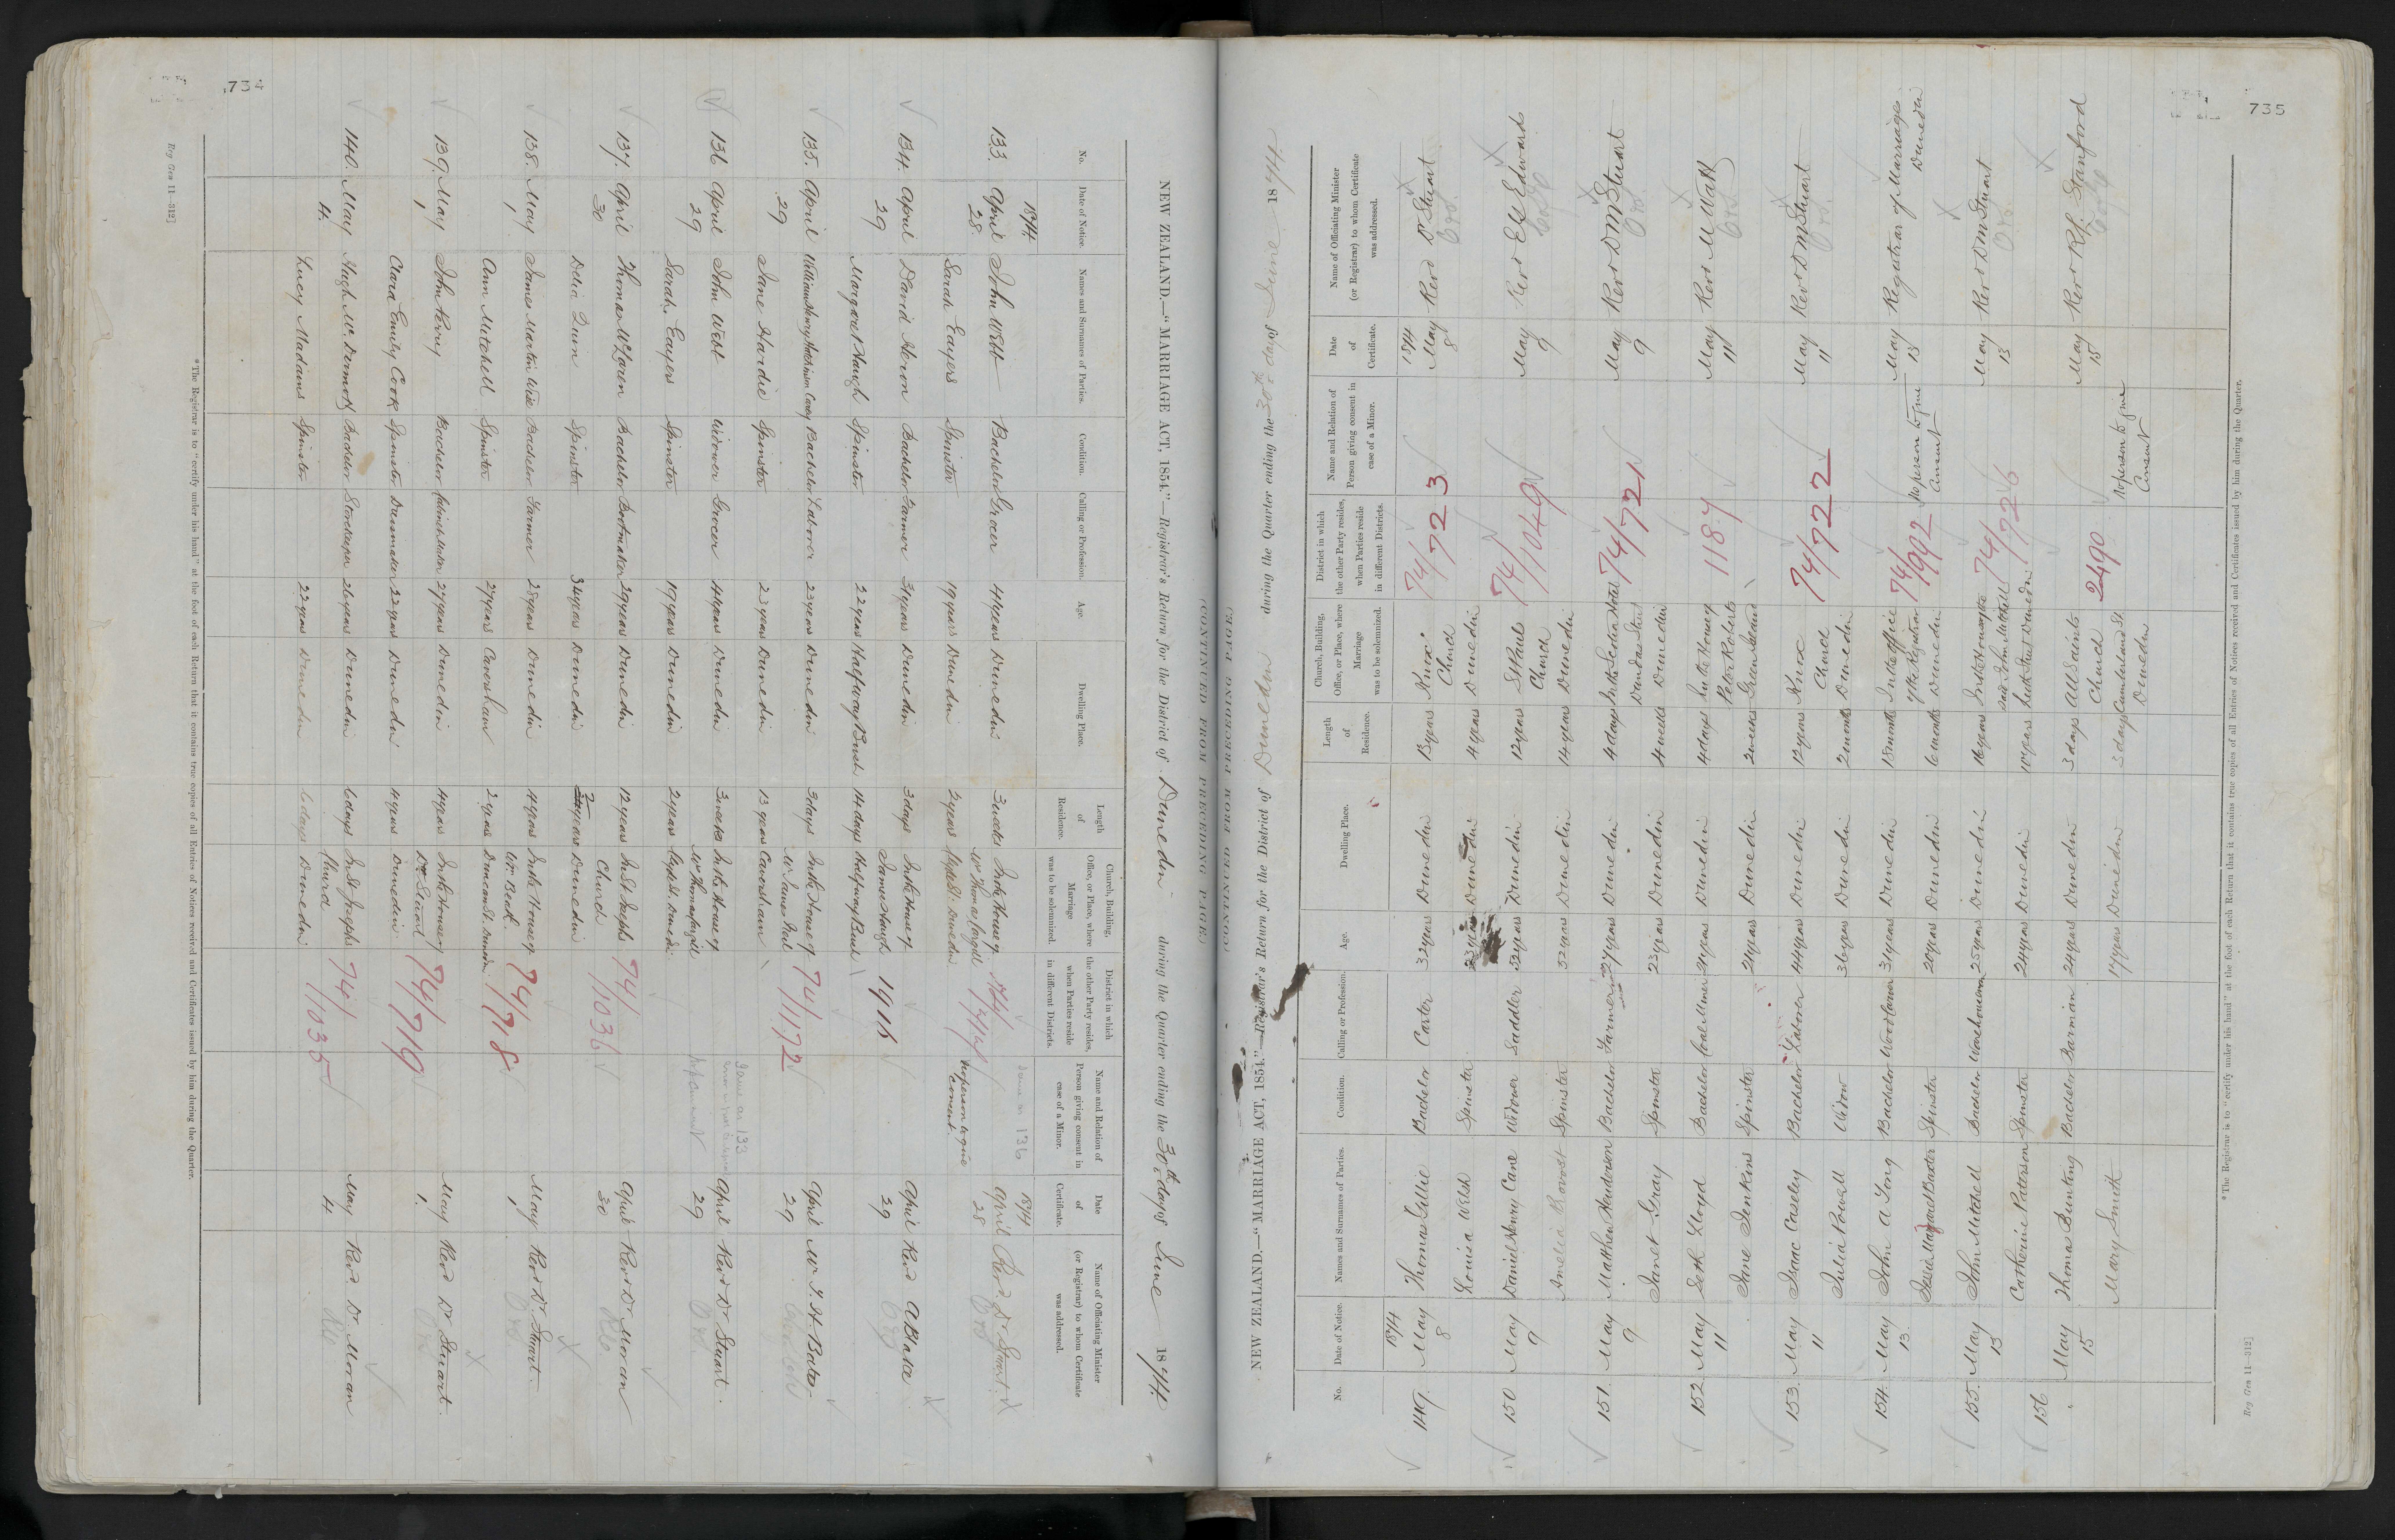 734
NEW ZEALAND.—"MARRIAGE ACT, 1854."—Registrar's Return for the District of Dunedin during the Quarter ending the 30th day of June 1874
No. Date of Notice. Names and Surnames of Parties. Condition. Calling or Profession. Age. Dwelling Place. Length of Residence. Church, Building, Office, or Place, where Marriage was to be solemnized. District in which the other Party resides, when Parties reside in different Districts. Name and Relation of Person giving consent in case of a Minor. Date of Certificate. Name of Officiating Minister (or Registrar) to whom Certificate was addressed.
1874 same as 136 1874
133. April 28 John Webb Bachelor Grocer 44 years Dunedin 3 weeks In the House of Mr Thomas Cargill April 28 Revd Dr Stuart
Sarah Eayers Spinster 19 years Dunedin 2 years Clyde St: Dunedin No person to give consent
134. April 29 David Heron Bachelor Farmer 31 years Dunedin 3 days In the House of James Haugh 1916 April 29 Revd A Blake
Margaret Haugh Spinster 22 years Halfway Bush 14 days Halfway Bush
135. April 29 William Henry Hutchinson Carey Bachelor Labourer 23 years Dunedin 3 days In the House of Mr James Neil 74/1172 April 29 Mr
Jane Hardie Spinster 23 years Dunedin 13 years Caversham
136 April 29 John Webb Widower Grocer 44 years Dunedin 3 weeks In the House of Mr Thomas Cargill Same as 133 April 29 Revd Dr Stuart.
Sarah Eayers Spinster 19 years Dunedin 2 years Clyde St. Dunedin
137. April 30 Thomas McLaren Bachelor Bootmaker 29 years Dunedin 12 years In St. Josephs Church 74/1036 April 30 Revd Dr Moran
Delia Quin Spinster 34 years Dunedin years Dunedin
138. May 1 James Martin Wise Bachelor Farmer 28 years Dunedin 4 years In the House of Mr. Beath. 74/718 May 1 Revd Dr. Stuart
Ann Mitchell Spinster 27 years Caversham 2 years Duncan St. Dunedin
139. May 1 John Kerry Bachelor 27 years Dunedin 4 years In the House of Dr. Stuart 74/719 May 1. Revd Dr Stuart
Clara Emily Cook Spinster Dressmaker 22 years Dunedin 4 years Dunedin
140. May 4. Hugh McDermott Bachelor Storekeeper 26 years Dunedin 6 days In St. Josephs Church 74/1035 May 4 Revd. Dr Moran
Lucy Maddins Spinster 22 years Dunedin 6 days Dunedin
*The Registrar is to "certify under his hand" at the foot of each Return that it contains true copies of all Entries of Notices received and Certificates issued by him during the Quarter.
Reg Gen 11—312]
(CONTINUED FROM PRECEDING PAGE.)
735
(CONTINUED FROM PRECEDING PAGE)
NEW ZEALAND.—"MARRIAGE ACT, 1854."—Registrar's Return for the District of Dunedin during the Quarter ending the 30th day of June 1874
No. Date of Notice. Names and Surnames of Parties. Condition. Calling or Profession. Age. Dwelling Place. Length of Residence. Church, Building, Office, or Place, where Marriage was to be solemnized. District in which the other Party resides, when Parties reside in different Districts. Name and Relation of Person giving consent in case of a Minor. Date of Certificate. Name of Officiating Minister (or Registrar) to whom Certificate was addressed.
1874 1874
149. May 8 Thomas Gillie Bachelor Carter 32 years Dunedin 13 years Knox Church 74/723 May 8 Revd Dr Stuart
Louisa Welsh Spinster 23 years Dunedin 4 years Dunedin
150 May 9 Daniel Henry Cane Widower Saddler 52 years Dunedin 12 years St Pauls Church 74/1049 May 9 Revd Edwards
Amelia Provost Spinster 52 years Dunedin 14 years Dunedin
151. May 9 Matthew Henderson Bachelor Farmer 27 years Dunedin 4 days In the Scotia Hotel 74/721 May 9 Revd D M Stuart
Janet Gray Spinster 23 years Dunedin 4 weeks Dundas Street Dunedin
152. May 11 Seth Lloyd Bachelor Coal Miner 24 years Dunedin 4 days In the House of Peter Roberts 1187 May 11 Revd M Watt
Jane Jenkins Spinster 24 years Dunedin 2 weeks Green Island
153. May 11 Isaac Caseley Bachelor Labourer 44 years Dunedin 12 years Knox Church 74/722 May 11 Revd D M Stuart
Julia Powell Widow 36 years Dunedin 2 months Dunedin
154. May 13. John A Long Bachelor 31 years Dunedin 18 months In the office of the Registrar 74/992 No person to give consent May 13 Registrar of Marriages Dunedin
Jessie Margaret Baxter Spinster 20 years Dunedin 6 months Dunedin
155. May 13 John Mitchell Bachelor Warehouseman 25 years Dunedin 16 years In the House of John Mitchell 74/726 May 13 Revd D M Stuart
Catherine Paterson Spinster 24 years Dunedin 10 years Leith Street Dunedin
156 May 15 Thomas Bunting Bachelor Barman 24 years Dunedin 3 days All Saints Church 2490 May 15 Revd R L Stanford
Mary Smith 17 years Dunedin 3 days Cumberland St. Dunedin No person to give Consent
*The Registrar is to "certify under his hand" at the foot of each Return that it contains true copies of all Entries of Notices received and Certificates issued by him during the Quarter.
Reg Gen 11—312]